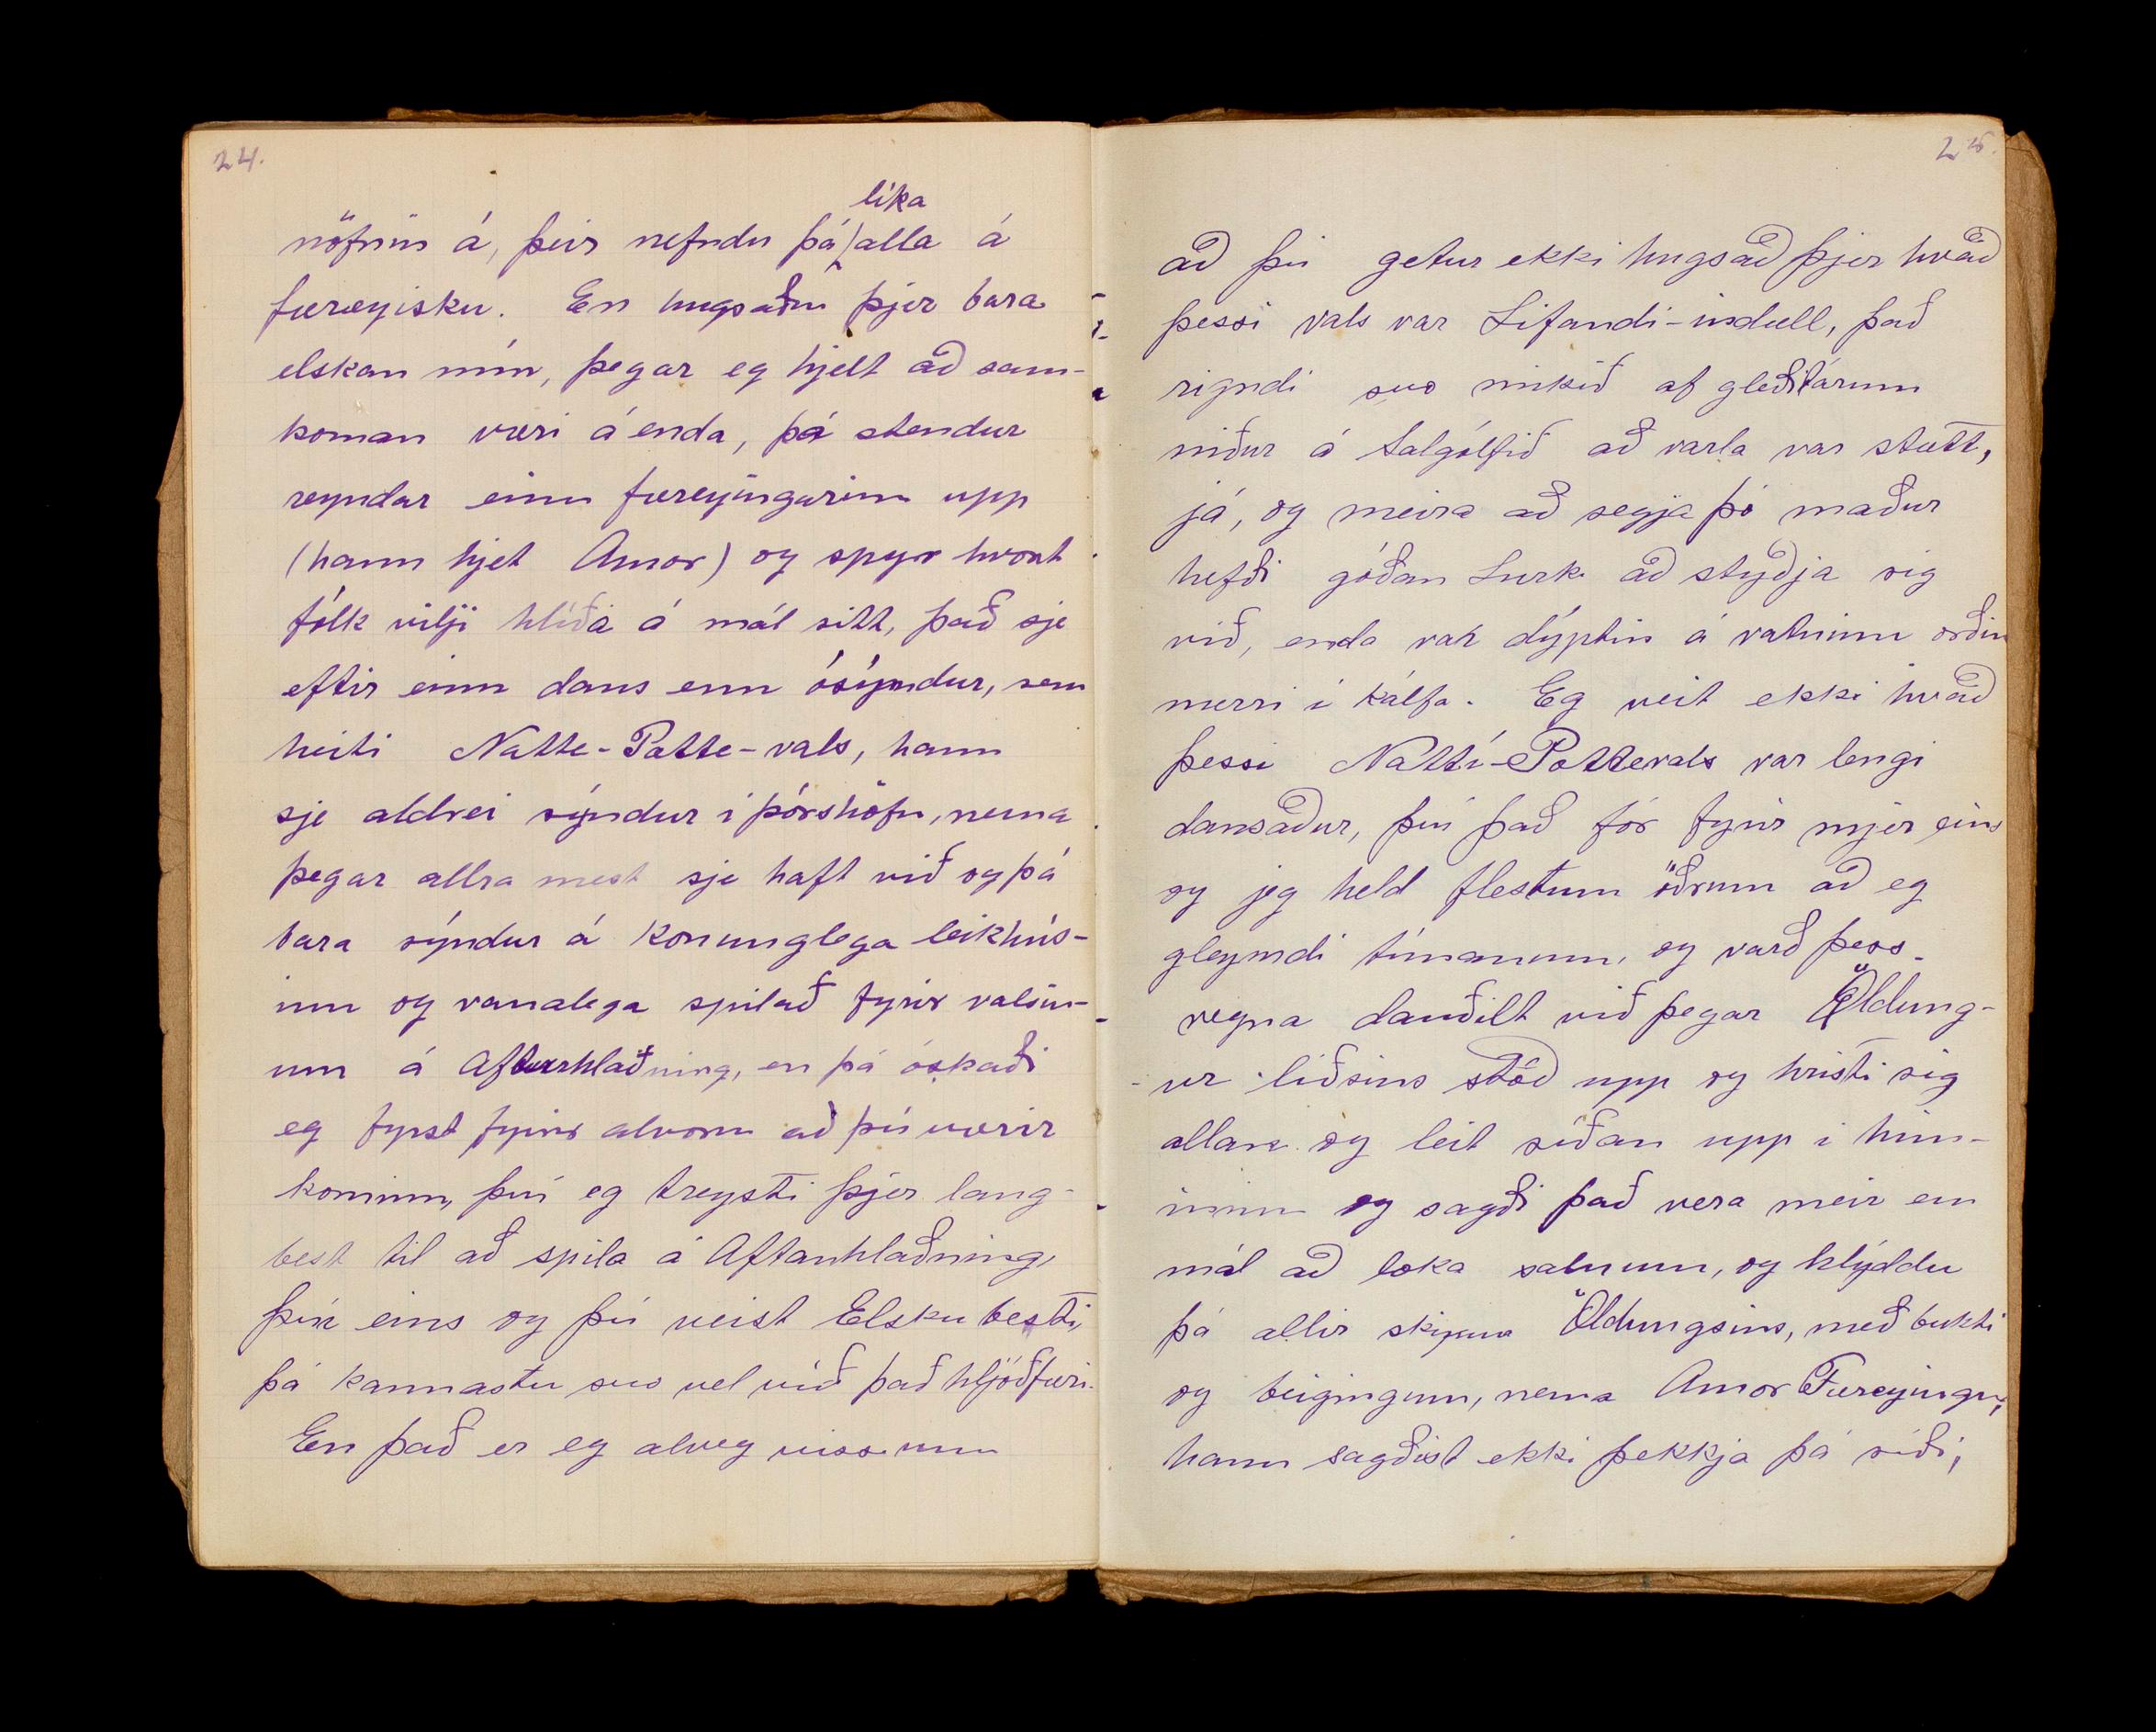 24.
líka
nöfnin á, þeir nefndu þá alla á
færeyisku. En hugsaðu þjer bara
elskan mín, þegar eg hjelt að sam-
koman væri á enda, þá stendur
reyndar einn færeyingurinn upp
(hann hjet Amor) og spyr hvort
fólk vilji hlíða á mál sitt, það sje
eftir einn dans enn ósýndur, sem
heiti Natte-Patte-vals, hann
sje aldrei sýndur í þórshöfn, nema
þegar allra mest sje haft við og þá
bara sýndur á konunglega leikhús-
inu og vanalega spilað fyrir valsin-
um á Afturhlaðning, en þá óskaði
eg fyrst fyrir alvoru að þú værir
kominn, því eg treysti þjer lang-
best til að spila á Aftanhlaðning,
því eins og þú veist Elsku besti,
þá kannastu svo vel við það hljóðfæri.
En það er eg alveg viss um
25.
að þú getur ekki hugsað þjer hvað
þessi vals var Lifandi-indæll, það
rigndi svo mikið af gleðitárum
niður á Salgólfið að varla var stætt,
já, og meira að segja þó maður
hefði góðan Lurk að styðja sig
við, enda var dýptin á vatninu orðin
nærri í kálfa. Eg veit ekki hvað
þessi Nattí-Pottevals var lengi
dansaður, því það fór fyrir mjer eins
og jeg held flestum öðrum að eg
gleymdi tímanum, og varð þess
vegna dauðilt við þegar Öldung-
ur liðsins stóð upp og hristi sig
allan og leit síðan upp í him-
ininn og sagði það vera meir en
mál að loka salnum, og hlýddu
þá allir skipun Öldungsins, með bukti
og beigingum, nema Amor Færeyingur,
hann sagðist ekki þekkja þá siði,